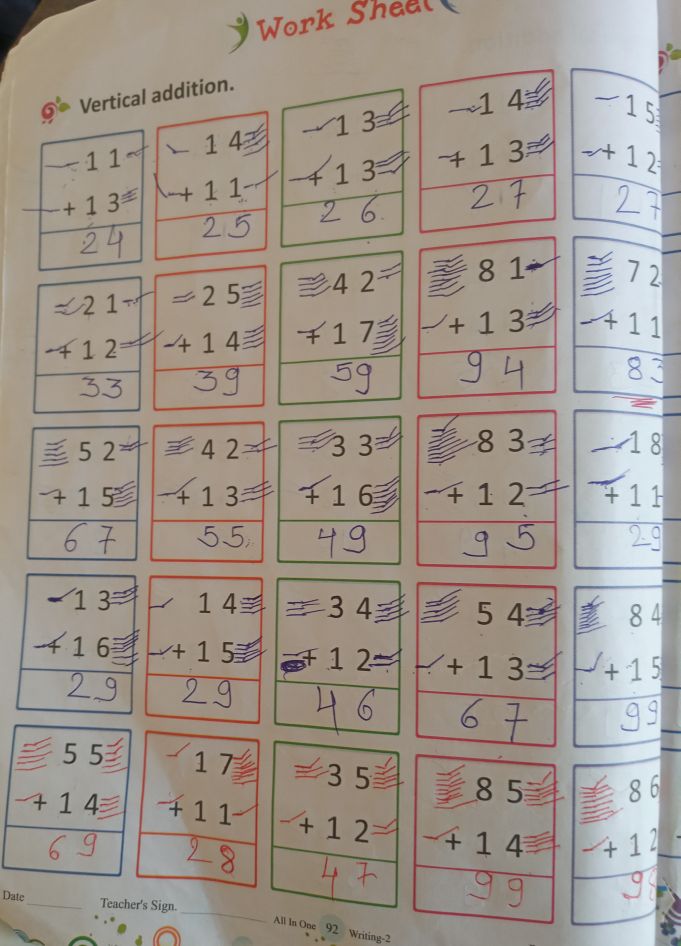 Work Sheet
Vertical addition.
11 14 13 14 15
+13 +11 +13 +13 +12
24 25 26 27 27
21 25 42 81 72
+12 +14 +17 +13 +11
33 39 59 94 83
52 42 33 83 18
+15 +13 +16 +12 +11
67 55 49 95 29
13 14 34 54 84
+16 +15 +12 +13 +15
29 29 46 67 99
55 17 35 85 86
+14 +11 +12 +14 +12
69 28 47 99 98
Date ________ Teacher's Sign. ____________
All In One 92 Writing-2